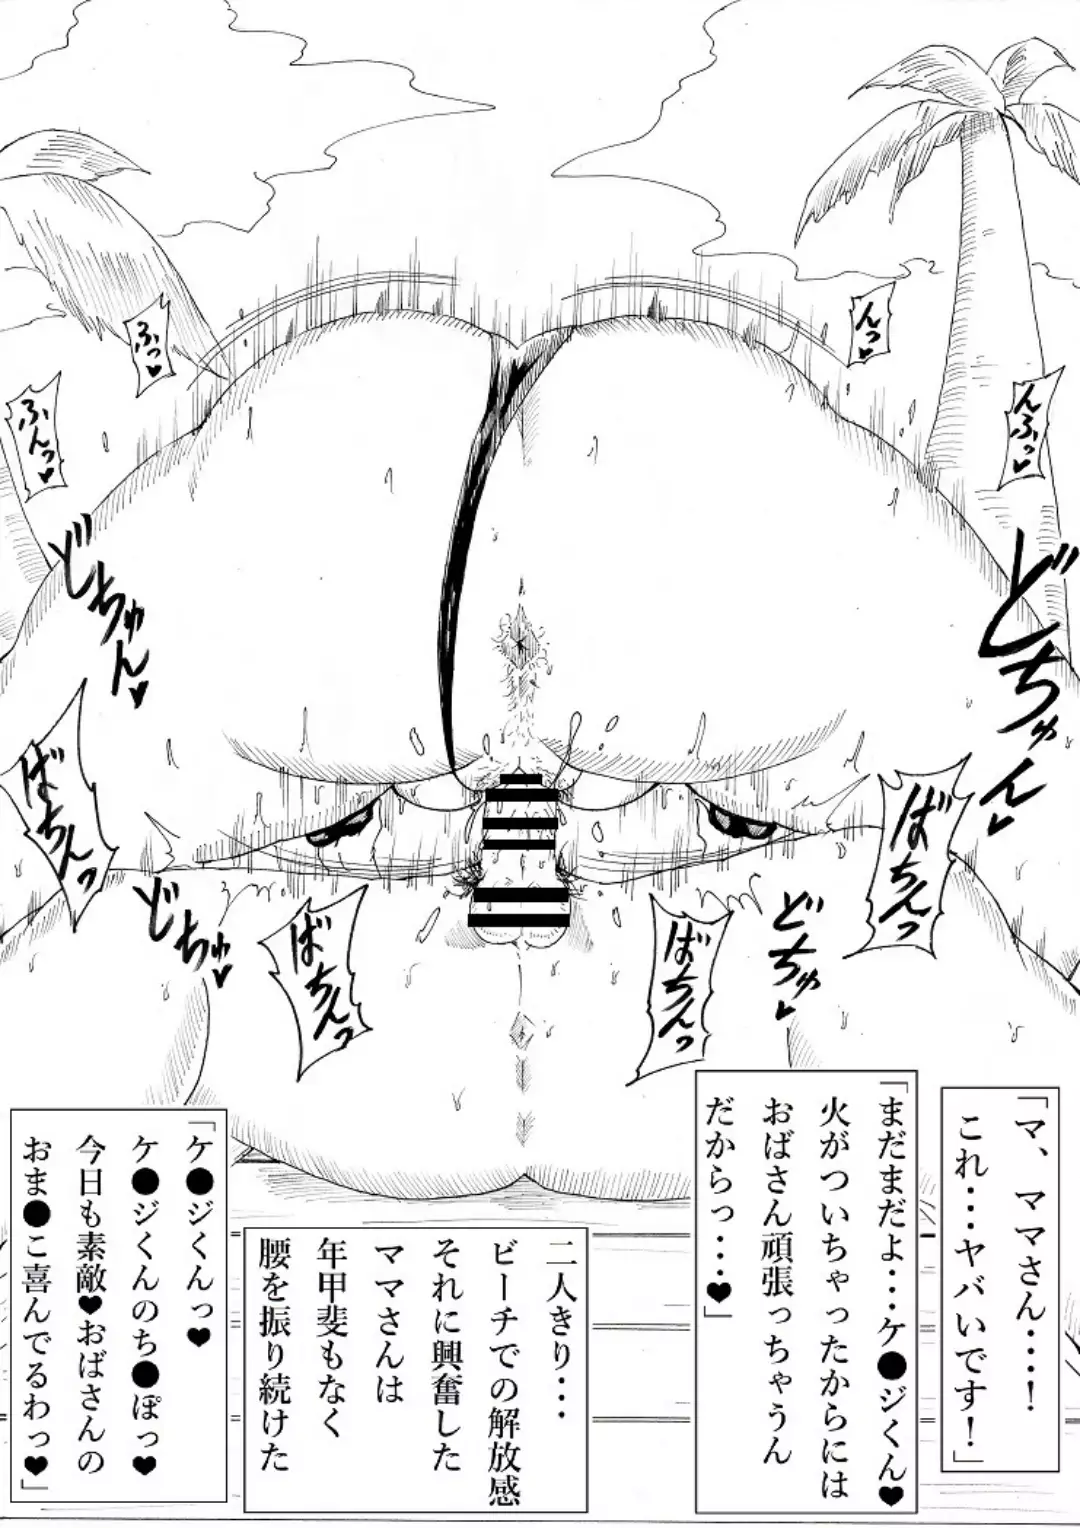 「マ、ママさん・・・!
これ・・・ヤバいです!」
「まだまだよ・・・ケ●ジくん♥
火がついちゃったからには
おばさん頑張っちゃうん
だからっ・・・♥」
二人きり・・・
ビーチでの解放感
それに興奮した
ママさんは
年甲斐もなく
腰を振り続けた
「ケ●ジくんっ♥
ケ●ジくんのち●ぽっ♥
今日も素敵♥おばさんの
おま●こ喜んでるわっ♥」
んっ♥
んふっ♥
ふっ♥
ふんっ♥
どちゅん♥
どちゅん♥
ばちんっ
ばちんっ
どちゅ♥
ばちんっ
ばちんっ
どちゅ♥